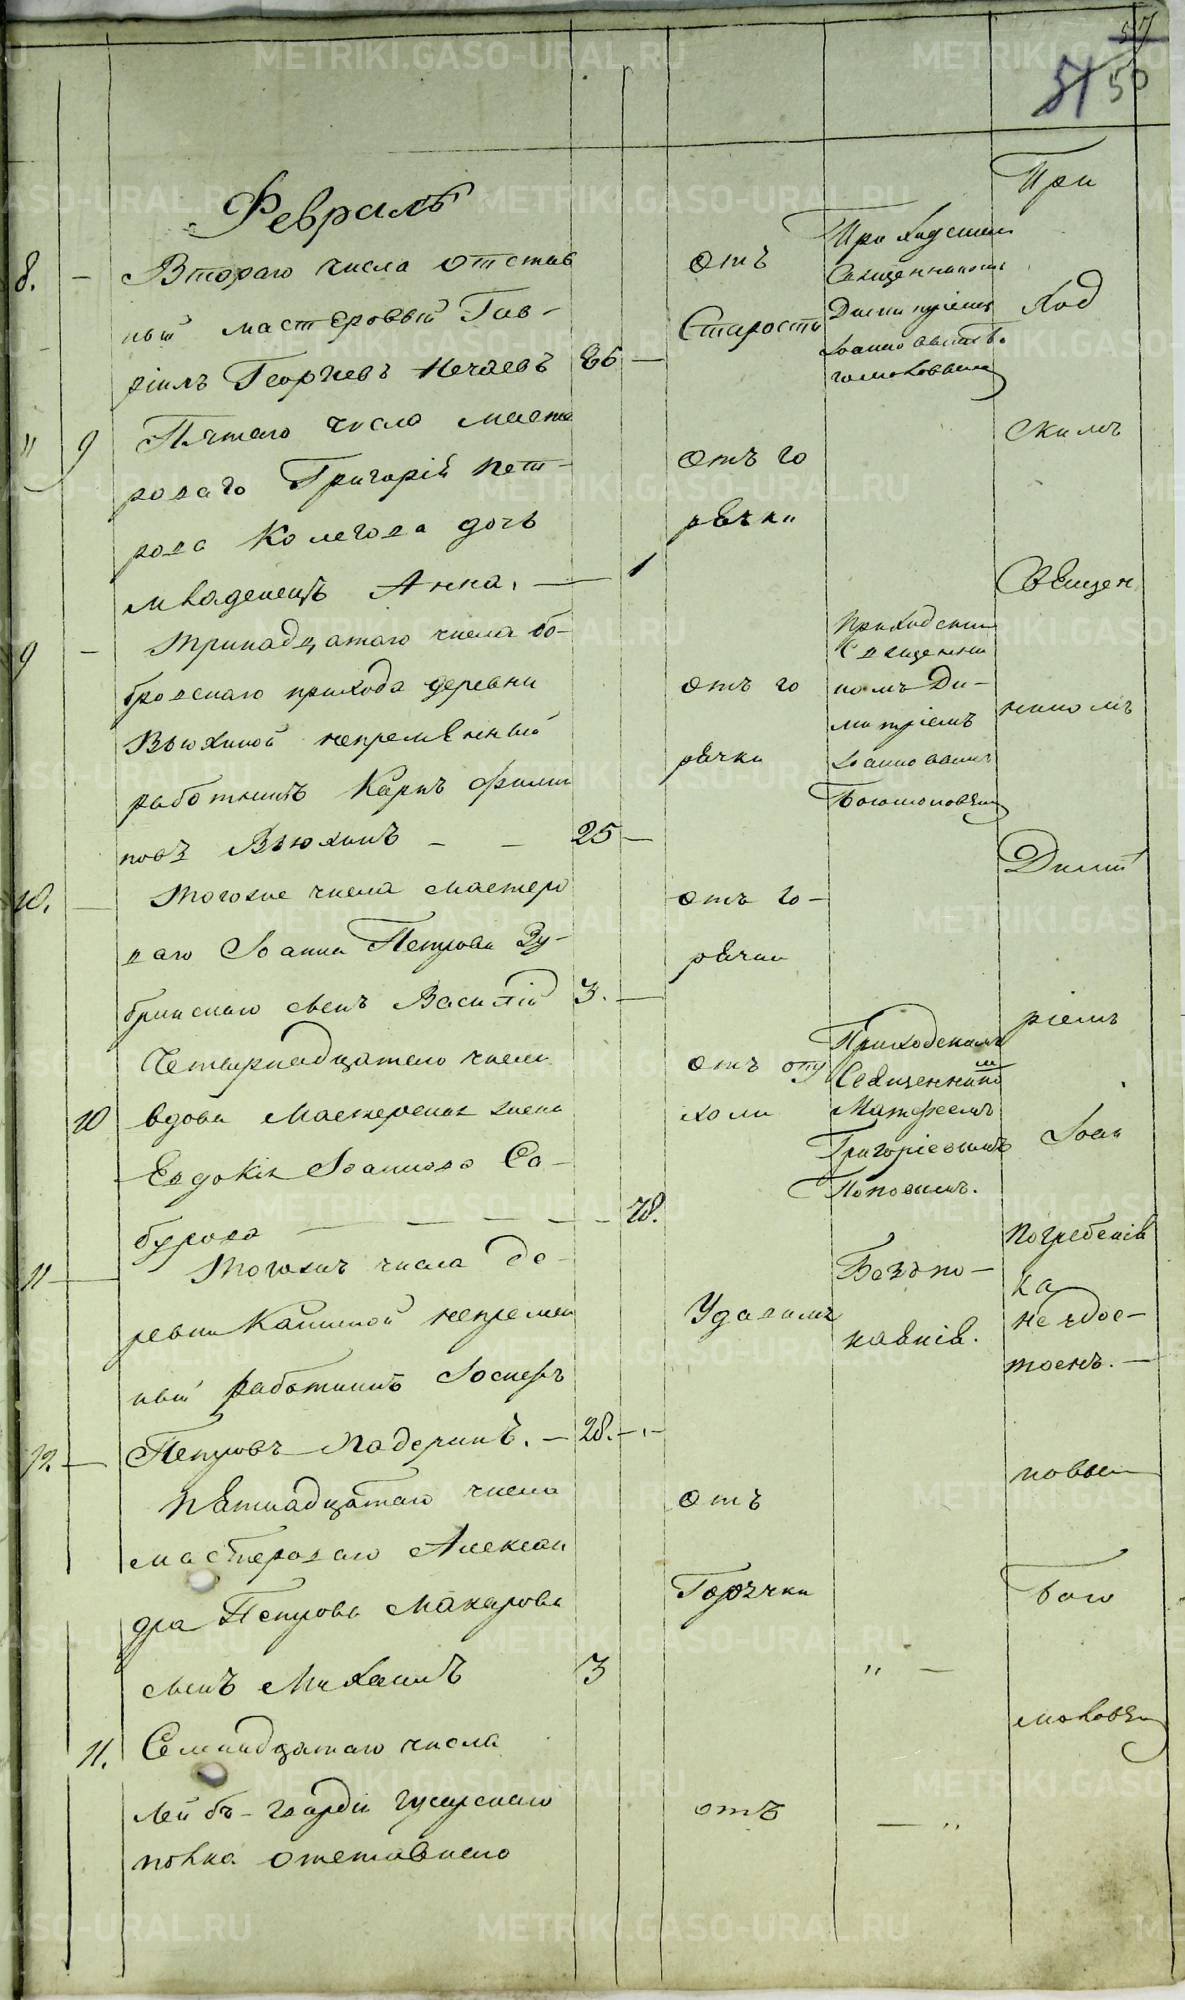 57
51 50
Февраль
8. — Втораго числа отстав
ный мастеровый Гав-
ріилъ Георгіевъ Нечаевъ 86 —
отъ
Старости
Приходскимъ
Священникомъ
Димитріемъ
Іоанновымъ Бо
гомоловымъ
" 9 Пятаго числа масте
роваго Григорія Пет-
рова Колегова дочь
младенецъ Анна. — 1
отъ го
рячки
9 — Тринадцатаго числа бо-
бровскаго прихода деревни
Вьюхиной непремѣнный
работникъ Карпъ Филип
повъ Вьюхинъ — — 25 —
отъ го
рячки
Приходскимъ
Священни
комъ Ди-
митріемъ
Іоанновымъ
Богомоловымъ
10. — Тогоже числа мастеро
ваго Іоанна Петрова Зу-
брицкаго сынъ Василій 3. —
отъ го-
рячки
10 Четырнадцатаго числа
вдова мастерская жена
Евдокія Іоаннова Са-
бурова — — — — 78.
отъ опу
холи
Приходскимъ
Священнико
Матфеемъ
Григоріевымъ
Поповымъ.
11 — Тогожъ числа де-
ревни Кашиной непремѣн
ный работникъ Іосифъ
Петровъ Падеринъ. — 28. —
Удавилъ
Безъ по-
каянія.
погребенія
не удос-
тоенъ. —
12. — Пятнадцатаго числа
мастероваго Алексан
дра Петрова Макарова
сынъ Михаилъ 3
отъ
Горячки
" —
11. Семнадцатаго числа
Лейбъ-гвардіи гусарскаго
полка отставнаго
отъ
— "
При
ход
скимъ
Священ
никомъ
Димит
ріемъ
Іоан
новым
Бого
моловым